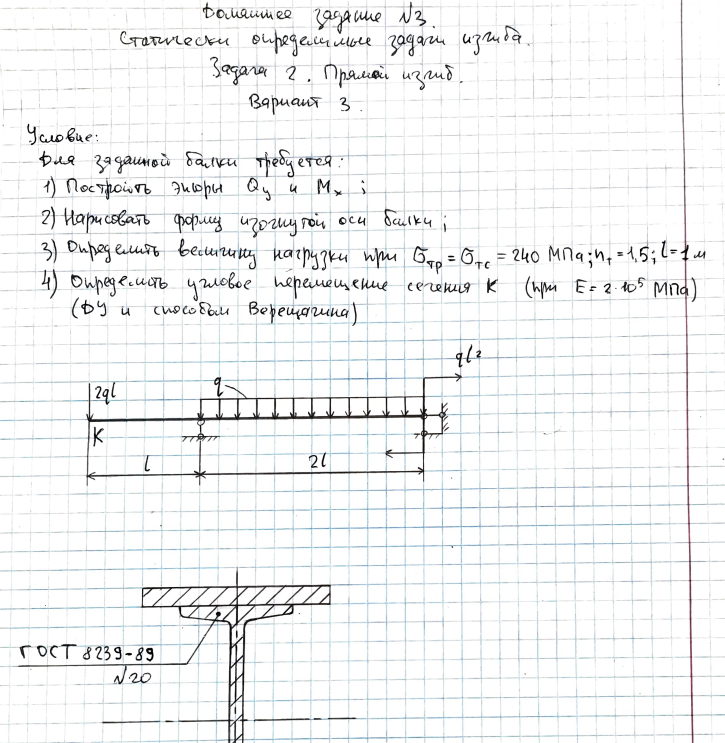 Домашнее задание №3.
Статически определимые задачи изгиба.
Задача 2. Прямой изгиб.
Вариант 3.
Условие:
Для заданной балки требуется:
1) Построить эпюры Qy и Mx ;
2) Нарисовать форму изогнутой оси балки;
3) Определить величину нагрузки при σтр = σтс = 240 МПа; nт = 1,5; l = 1 м
4) Определить угловое перемещение сечения K (при E = 2·10⁵ МПа)
(ДУ и способом Верещагина)
ql²
2ql
q
K
l
2l
ГОСТ 8239-89
№20